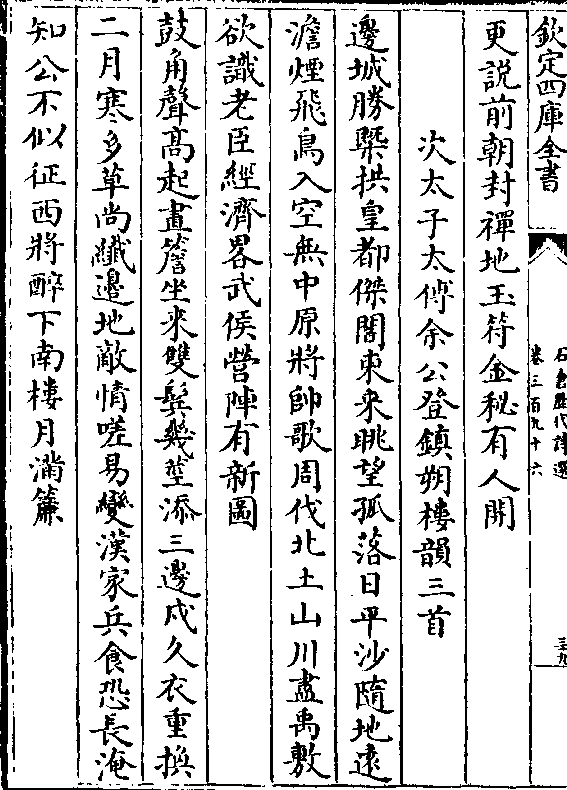 欽定四庫全書
石倉歷代詩選
卷三百九十六
三九
更説前朝封禪地玉符金秘有人開
次太子太傅余公登鎮朔樓韻三首
邊城勝槩拱皇都傑閣東來眺望孤落日平沙隨地逺
澹煙飛鳥入空無中原將帥歌周代北土山川盡禹敷
欲識老臣經濟畧武侯營陣有新圖
鼓角聲髙起畫簷坐来雙鬂幾莖添三邊戍久衣重換
二月寒多草尚纖邊地敵情嗟易變漢家兵食恐長淹
知公不似征西將醉下南樓月滿簾